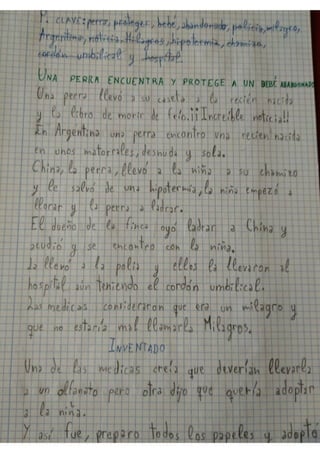 P. CLAVE: perra, proteger, bebé, abandonado, policía, milagro,
Argentina, noticia, Milagros, hipotermia, chamizo,
cordón umbilical y hospital.
UNA PERRA ENCUENTRA Y PROTEGE A UN BEBÉ ABANDONADO
Una perra llevó a su caseta a la recién nacida
y la libro de morir de frío. ¡¡Increíble noticia!!
En Argentina una perra encontro una recien nacida
en unos matorrales, desnuda y sola.
China, la perra, llevó a la niña a su chamizo
y le salvó de una hipotermia, la niña empezó a
llorar y la perra a ladrar.
El dueño de la finca oyó ladrar a China y
acudió y se encontro con la niña.
La llevó a la polia y ellos la llevaron al
hospital aún teniendo el cordón umbilical.
Las medicas consideraron que era un milagro y
que no estaría mal llamarla Milagros.
INVENTADO
Una de las medicas creía que deverían llevarla
a un olfanato pero otra dijo que quería adoptar
a la niña.
Y así fue, preparo todos los papeles y adoptó